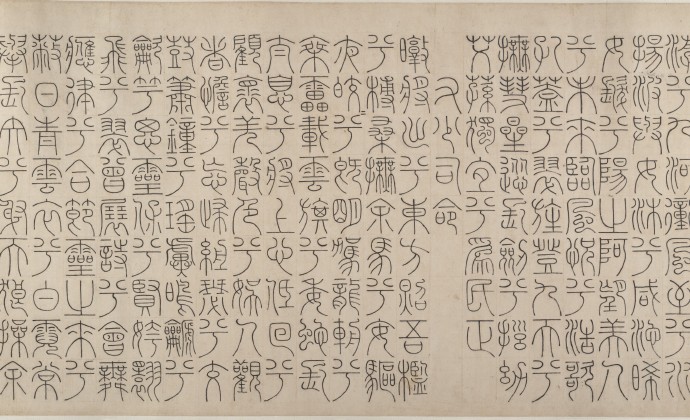 游兮九河衝風至兮水
揚波與女沐兮咸池晞
女髮兮陽之阿望美人
兮未來臨風怳兮浩歌
孔蓋兮翠旌登九天兮
撫彗星竦長劍兮擁幼
艾蓀獨宜兮爲民正
右少司命
暾將出兮東方照吾檻
兮扶桑撫余馬兮安驅
夜皎兮既明駕龍輈兮
乘雷載雲旗兮委蛇長
太息兮將上心低佪兮
顧懷羌聲色兮娛人觀
者憺兮忘歸緪瑟兮交
鼓簫鐘兮瑤簴鳴篪兮
龡竽思靈保兮賢姱翾
飛兮翠曾展詩兮會舞
應律兮合節靈之來兮
蔽日青雲衣兮白霓裳
舉長矢兮射天狼操余